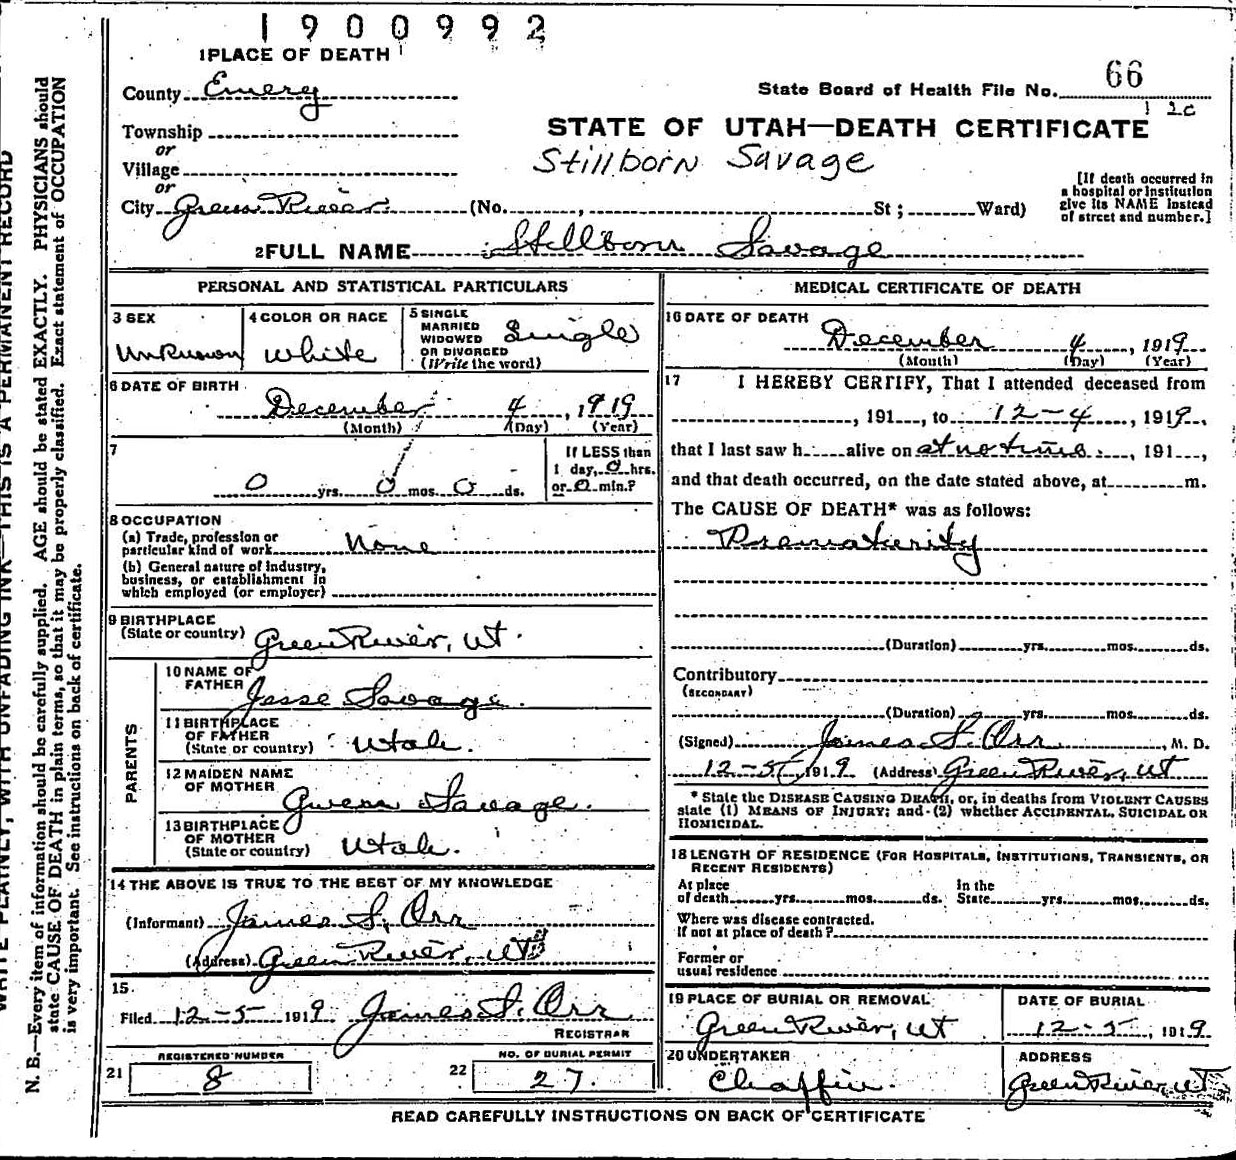 1900992
1 PLACE OF DEATH
County Emery
State Board of Health File No. 66
1 2c
Township
or
STATE OF UTAH—DEATH CERTIFICATE
Stillborn Savage
Village
or
City Green River (No. , St ; Ward)
[If death occurred in
a hospital or institution
give its NAME instead
of street and number.]
2 FULL NAME Stillborn Savage
PERSONAL AND STATISTICAL PARTICULARS
3 SEX
Unknown
4 COLOR OR RACE
White
5 SINGLE
MARRIED
WIDOWED
OR DIVORCED
(Write the word)
Single
6 DATE OF BIRTH
December 4, 1919
(Month) (Day) (Year)
7
0 yrs. 0 mos. 0 ds.
If LESS than
1 day, 0 hrs.
or 0 min.?
8 OCCUPATION
(a) Trade, profession or
particular kind of work None
(b) General nature of industry,
business, or establishment in
which employed (or employer)
9 BIRTHPLACE
(State or country) Green River, Ut.
PARENTS
10 NAME OF
FATHER Jesse Savage.
11 BIRTHPLACE
OF FATHER
(State or country) Utah.
12 MAIDEN NAME
OF MOTHER
Gwenn Savage.
13 BIRTHPLACE
OF MOTHER
(State or country) Utah.
14 THE ABOVE IS TRUE TO THE BEST OF MY KNOWLEDGE
(Informant) James S. Orr
(Address) Green River, Ut
15
Filed 12-5 1919 James S. Orr
REGISTRAR
REGISTERED NUMBER
21 8
NO. OF BURIAL PERMIT
22 27.
MEDICAL CERTIFICATE OF DEATH
16 DATE OF DEATH
December 4, 1919
(Month) (Day) (Year)
17 I HEREBY CERTIFY, That I attended deceased from
, 191 , to 12-4 , 1919,
that I last saw h alive on at no time. , 191 ,
and that death occurred, on the date stated above, at m.
The CAUSE OF DEATH* was as follows:
Prematurity
(Duration) yrs. mos. ds.
Contributory
(SECONDARY)
(Duration) yrs. mos. ds.
(Signed) James S. Orr , M. D.
12-5, 1919 (Address) Green River, Ut
* State the DISEASE CAUSING DEATH, or, in deaths from VIOLENT CAUSES
state (1) MEANS OF INJURY; and (2) whether ACCIDENTAL, SUICIDAL OR
HOMICIDAL.
18 LENGTH OF RESIDENCE (FOR HOSPITALS, INSTITUTIONS, TRANSIENTS, OR
RECENT RESIDENTS)
At place
of death yrs. mos. ds.
In the
State yrs. mos. ds.
Where was disease contracted.
If not at place of death?
Former or
usual residence
19 PLACE OF BURIAL OR REMOVAL
Green River, Ut
DATE OF BURIAL
12-5, 1919
20 UNDERTAKER
Chaffin.
ADDRESS
Green River, Ut
READ CAREFULLY INSTRUCTIONS ON BACK OF CERTIFICATE
WRITE PLAINLY, WITH UNFADING INK—THIS IS A PERMANENT RECORD
N. B.—Every item of information should be carefully supplied. AGE should be stated EXACTLY. PHYSICIANS should
state CAUSE OF DEATH in plain terms, so that it may be properly classified. Exact statement of OCCUPATION
is very important. See instructions on back of certificate.